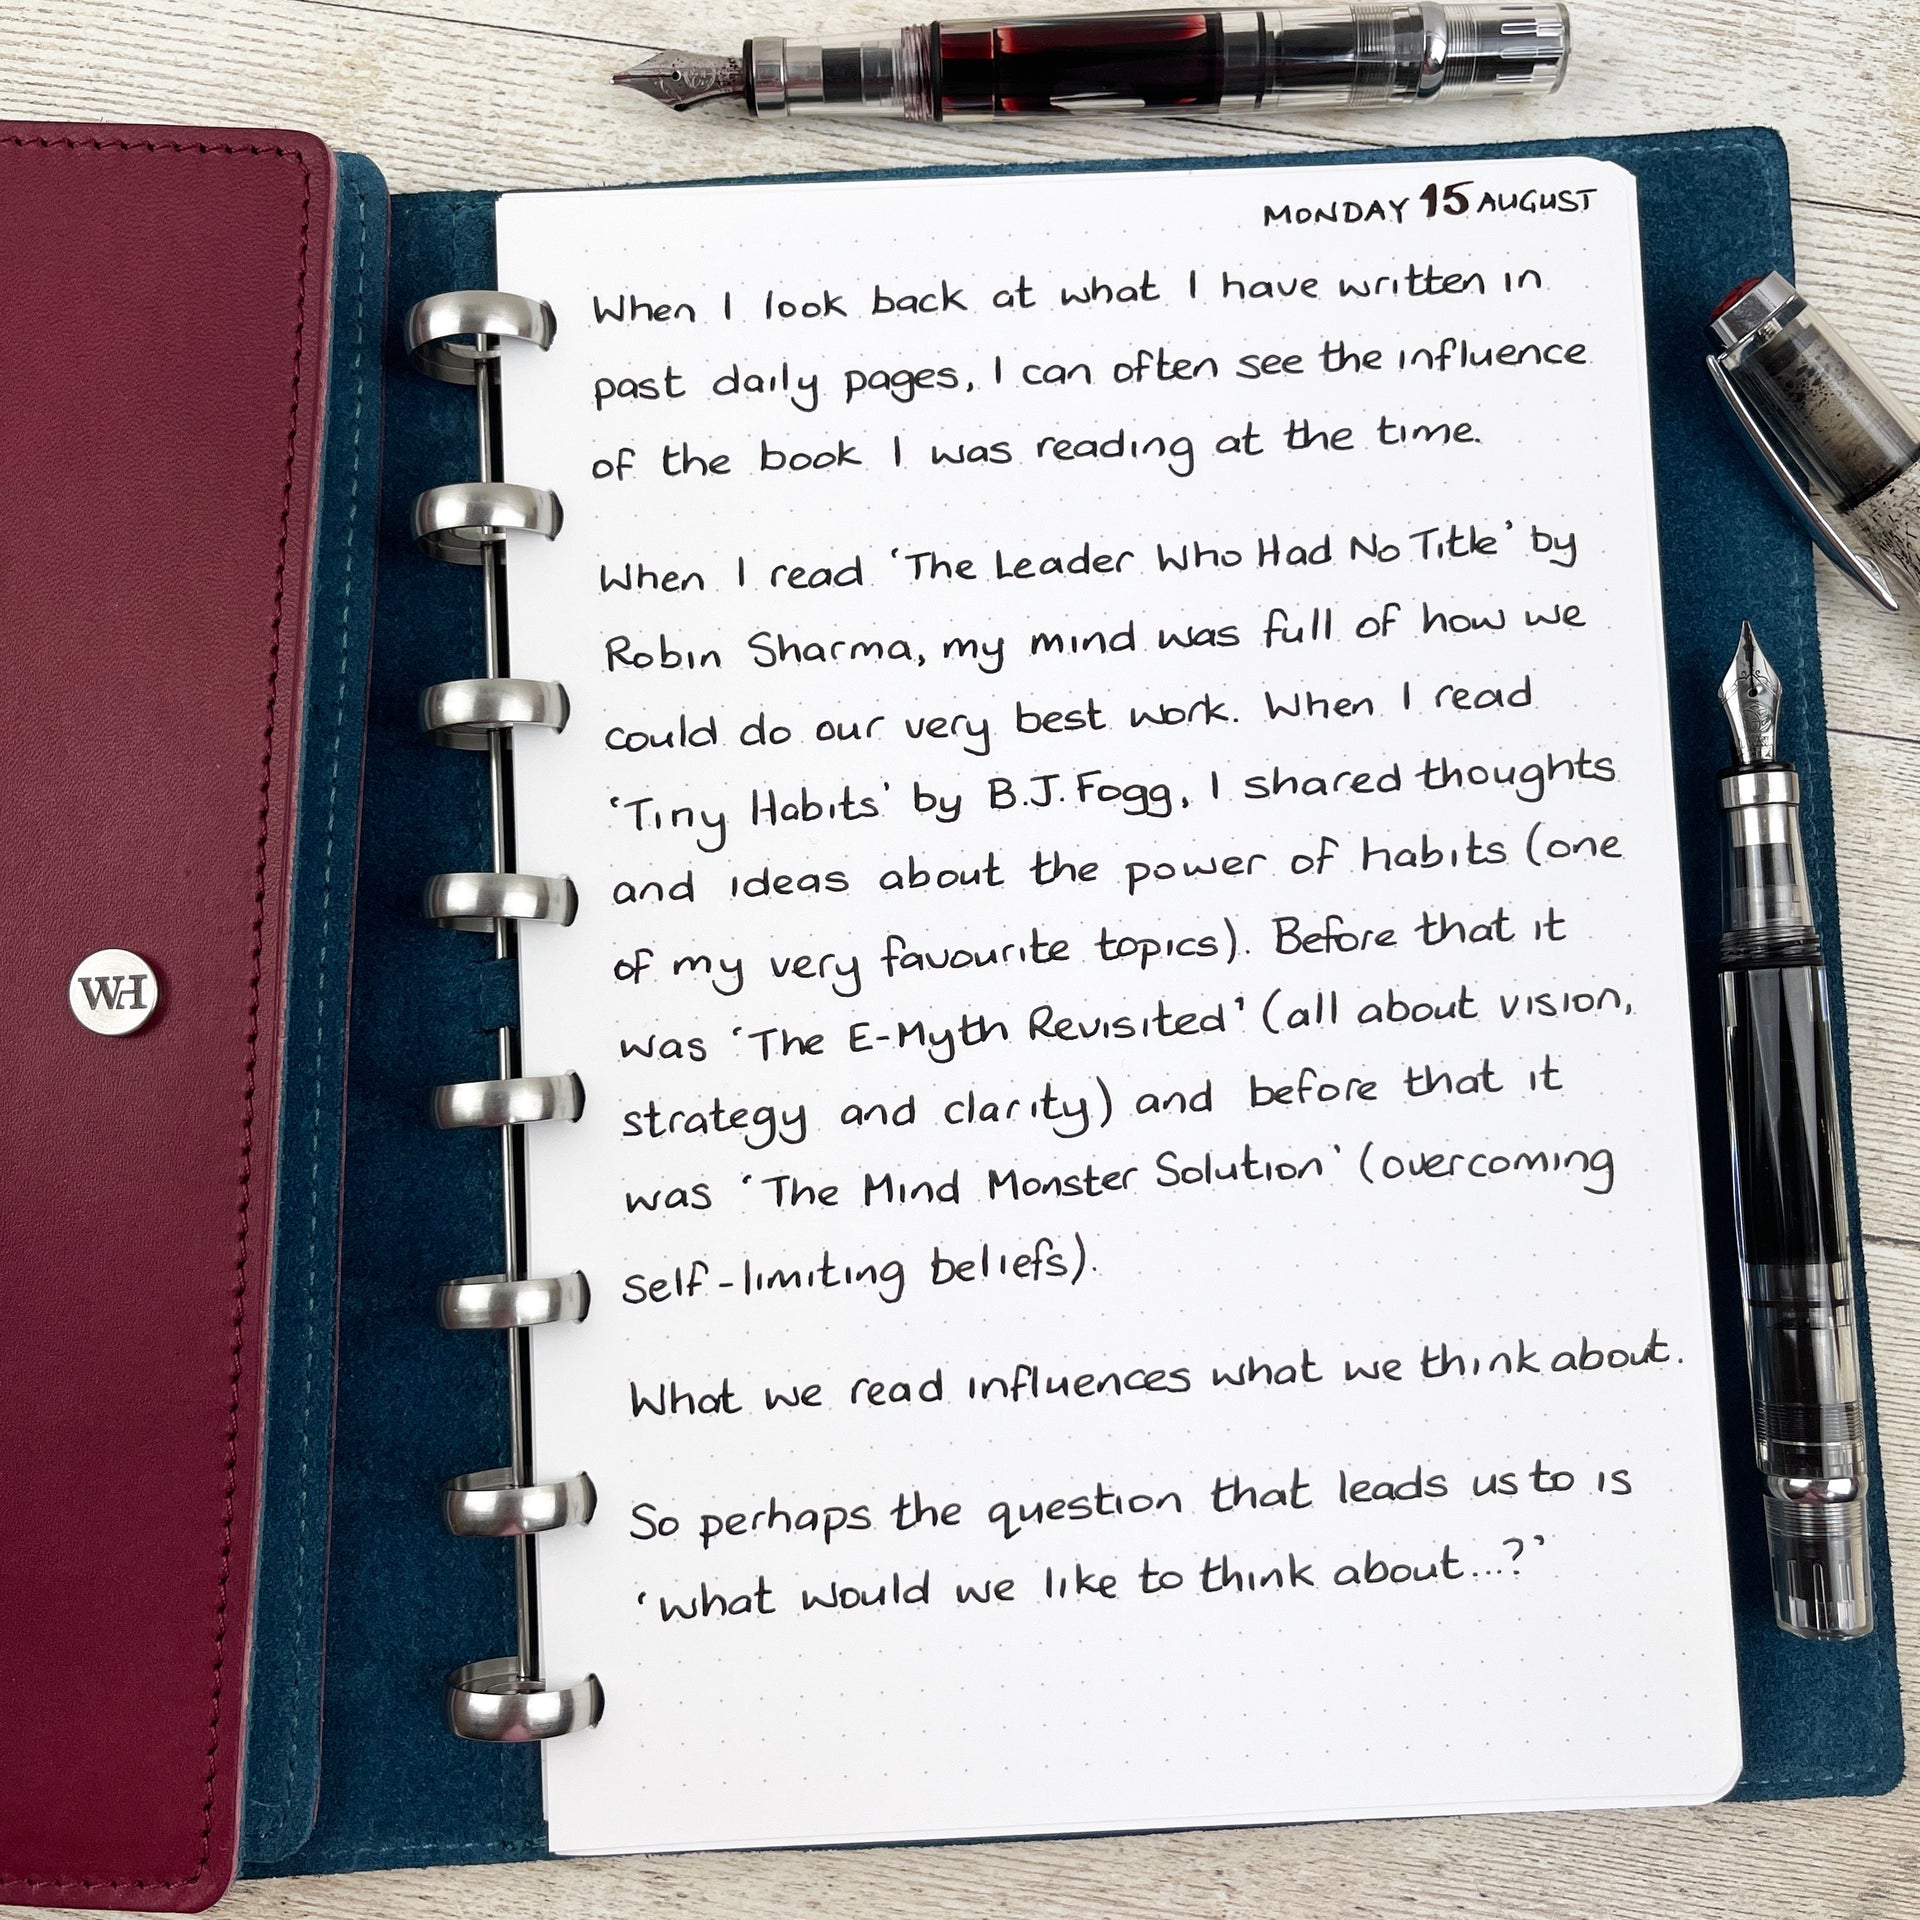 MONDAY 15 AUGUST
When I look back at what I have written in
past daily pages, I can often see the influence
of the book I was reading at the time.
When I read 'The Leader Who Had No Title' by
Robin Sharma, my mind was full of how we
could do our very best work. When I read
'Tiny Habits' by B.J. Fogg, I shared thoughts
and ideas about the power of habits (one
of my very favourite topics). Before that it
was 'The E-Myth Revisited' (all about vision,
strategy and clarity) and before that it
was 'The Mind Monster Solution' (overcoming
self-limiting beliefs).
What we read influences what we think about.
So perhaps the question that leads us to is
'what would we like to think about...?'
WH